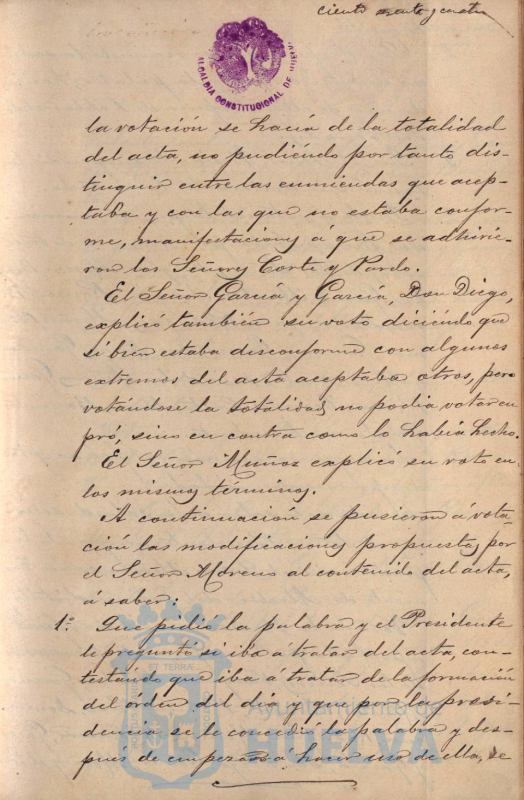 ciento  y cuatro
ALCALDIA CONSTITUCIONAL DE HUELVA
la votación se hacía de la totalidad
del acta, no pudiéndo por tanto dis-
tinguir entre las enmiendas que acep-
taba y con las que no estaba confor-
me, manifestaciones á que se adhirié-
ron los Señores Corte y Pardo.
El Señor García y García, Don Diego,
explicó también su voto diciéndo que
si bien estaba disconforme con algunos
extremos del acta aceptaba otros, pero
votándose la totalidad, no podía votar en
pró, sino en contra como lo había hecho.
El Señor Muñoz explicó su voto en
los mismos términos.
A continuación se pusieron á vota-
ción las modificaciones propuestas por
el Señor Moreno al contenido del acta,
á saber:
1.º Que pidió la palabra y el Presidente
le preguntó si iba á tratar del acta, con-
testándo que iba á tratar de la formación
del orden del día y que por la presi-
dencia se le concedió la palabra y des-
pués de empezar á hacer uso de ella, se
ET TERRAE
Ayuntamiento de
HUELVA